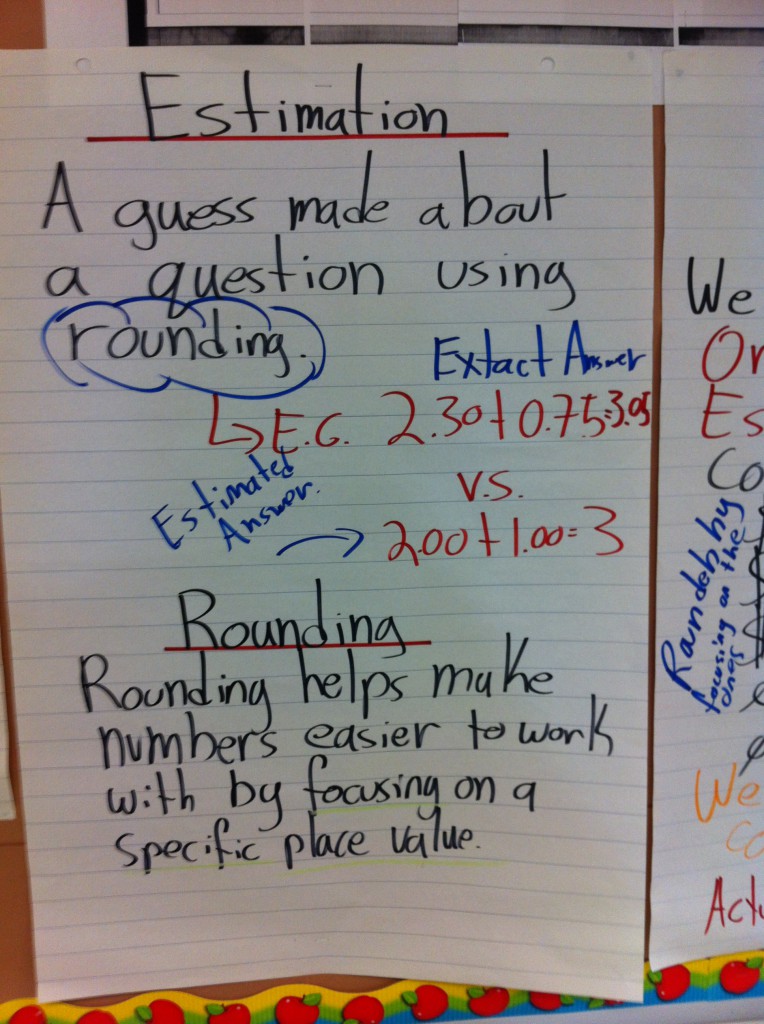 Estimation
A guess made about
a question using
rounding.
Extact Answer
E.G. 2.30+0.75=3.05
v.s.
Estimated
Answer.
2.00+1.00=3
Rounding
Rounding helps make
numbers easier to work
with by focusing on a
specific place value.
We
Or
Es
Co
Randeb by
focusing on the
ones
We
Co
Actu